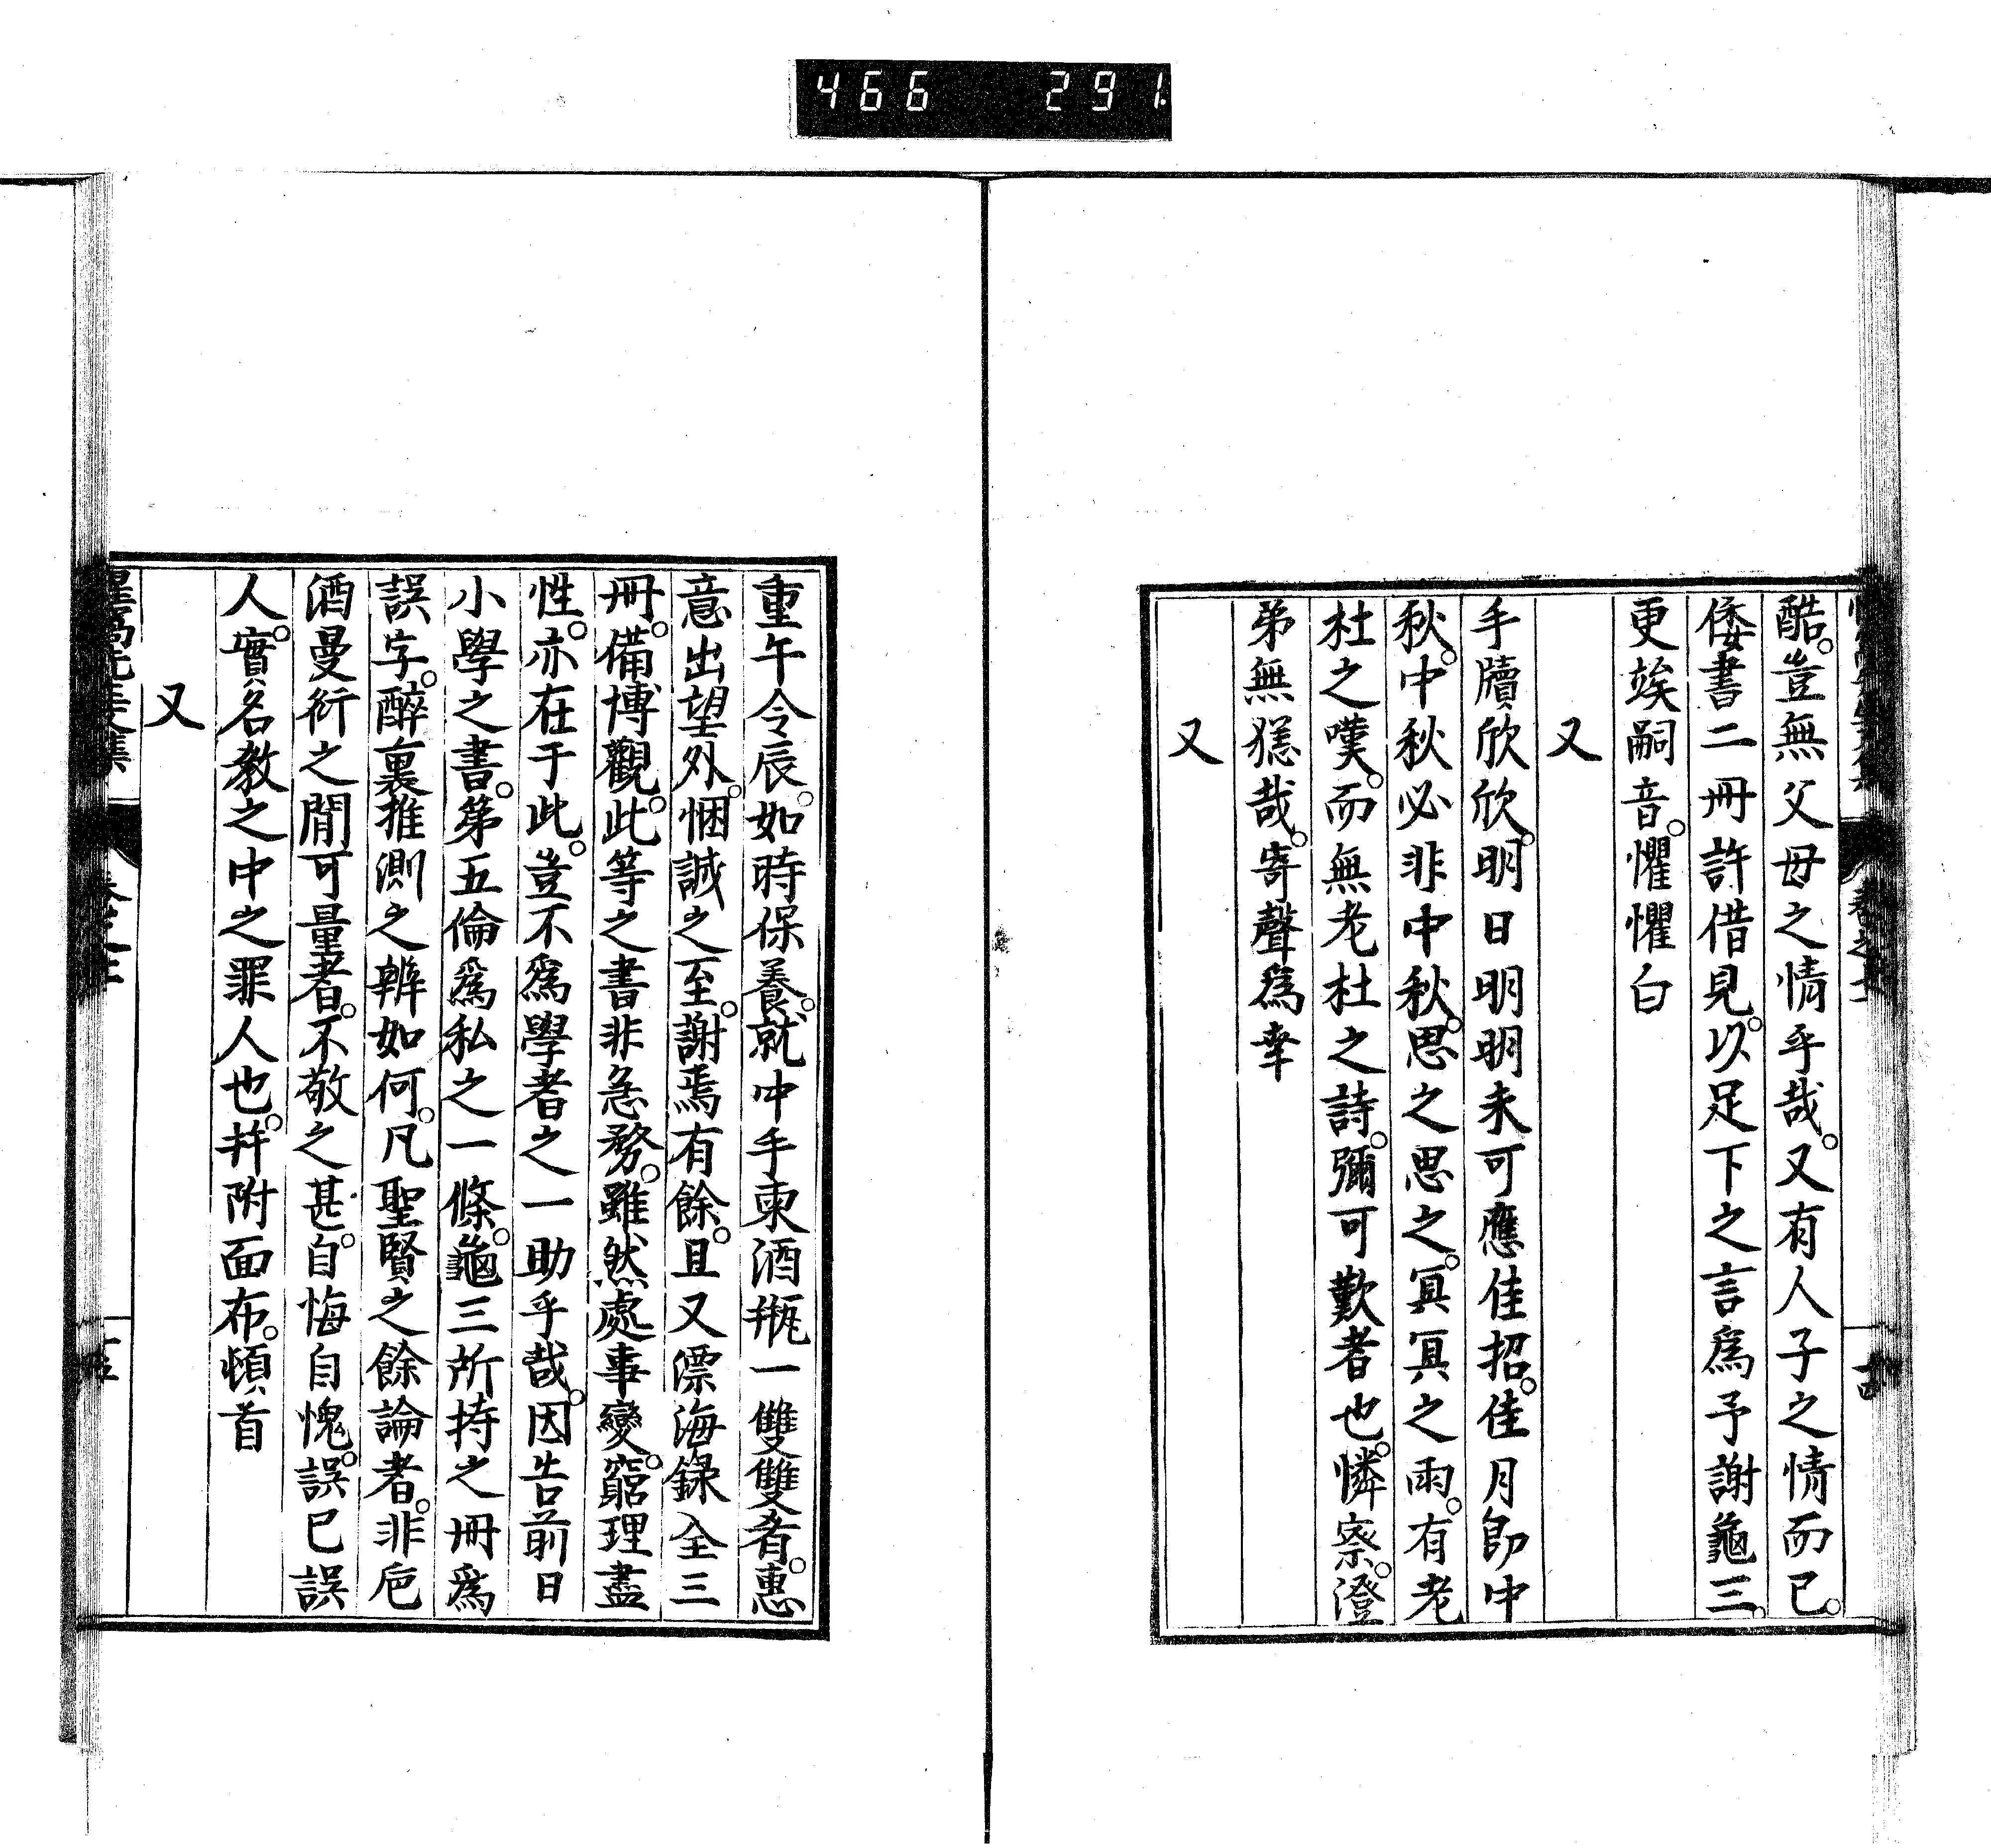 466 291
酷。豈無父母之情乎哉。又有人子之情而已。
倭書二冊許借見。以足下之言爲予謝龜三。
更竢嗣音。懼懼白
又
手牘欣欣。明日明明未可應佳招。佳月卽中
秋。中秋必非中秋。思之思之。冥冥之雨。有老
杜之嘆。而無老杜之詩。彌可歎者也。憐察。澄
弟無恙哉。寄聲爲幸
又
重午令辰。如時保養。就中手柬酒瓶一雙雙肴。惠
意出望外。悃誠之至。謝焉有餘。且又漂海錄全三
冊。備博觀。此等之書非急務。雖然處事變。窮理盡
性。亦在于此。豈不爲學者之一助乎哉。因告前日
小學之書。第五倫爲私之一條。龜三所持之冊爲
誤字。醉裏推測之辨如何。凡聖賢之餘論者。非巵
酒曼衍之閒可量者。不敬之甚。自悔自愧。誤已誤
人。實名教之中之罪人也。并附面布。頓首
又